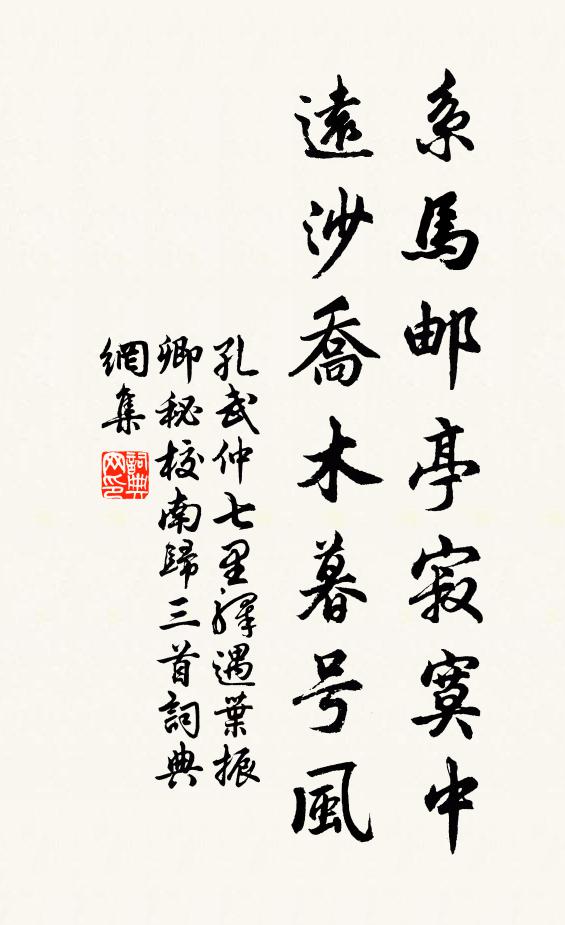 系馬邮亭寂寞中
遠沙喬木暮号風
孔武仲七里驛遇葉振
卿秘校南歸三首詞典
網集
詞典
网印